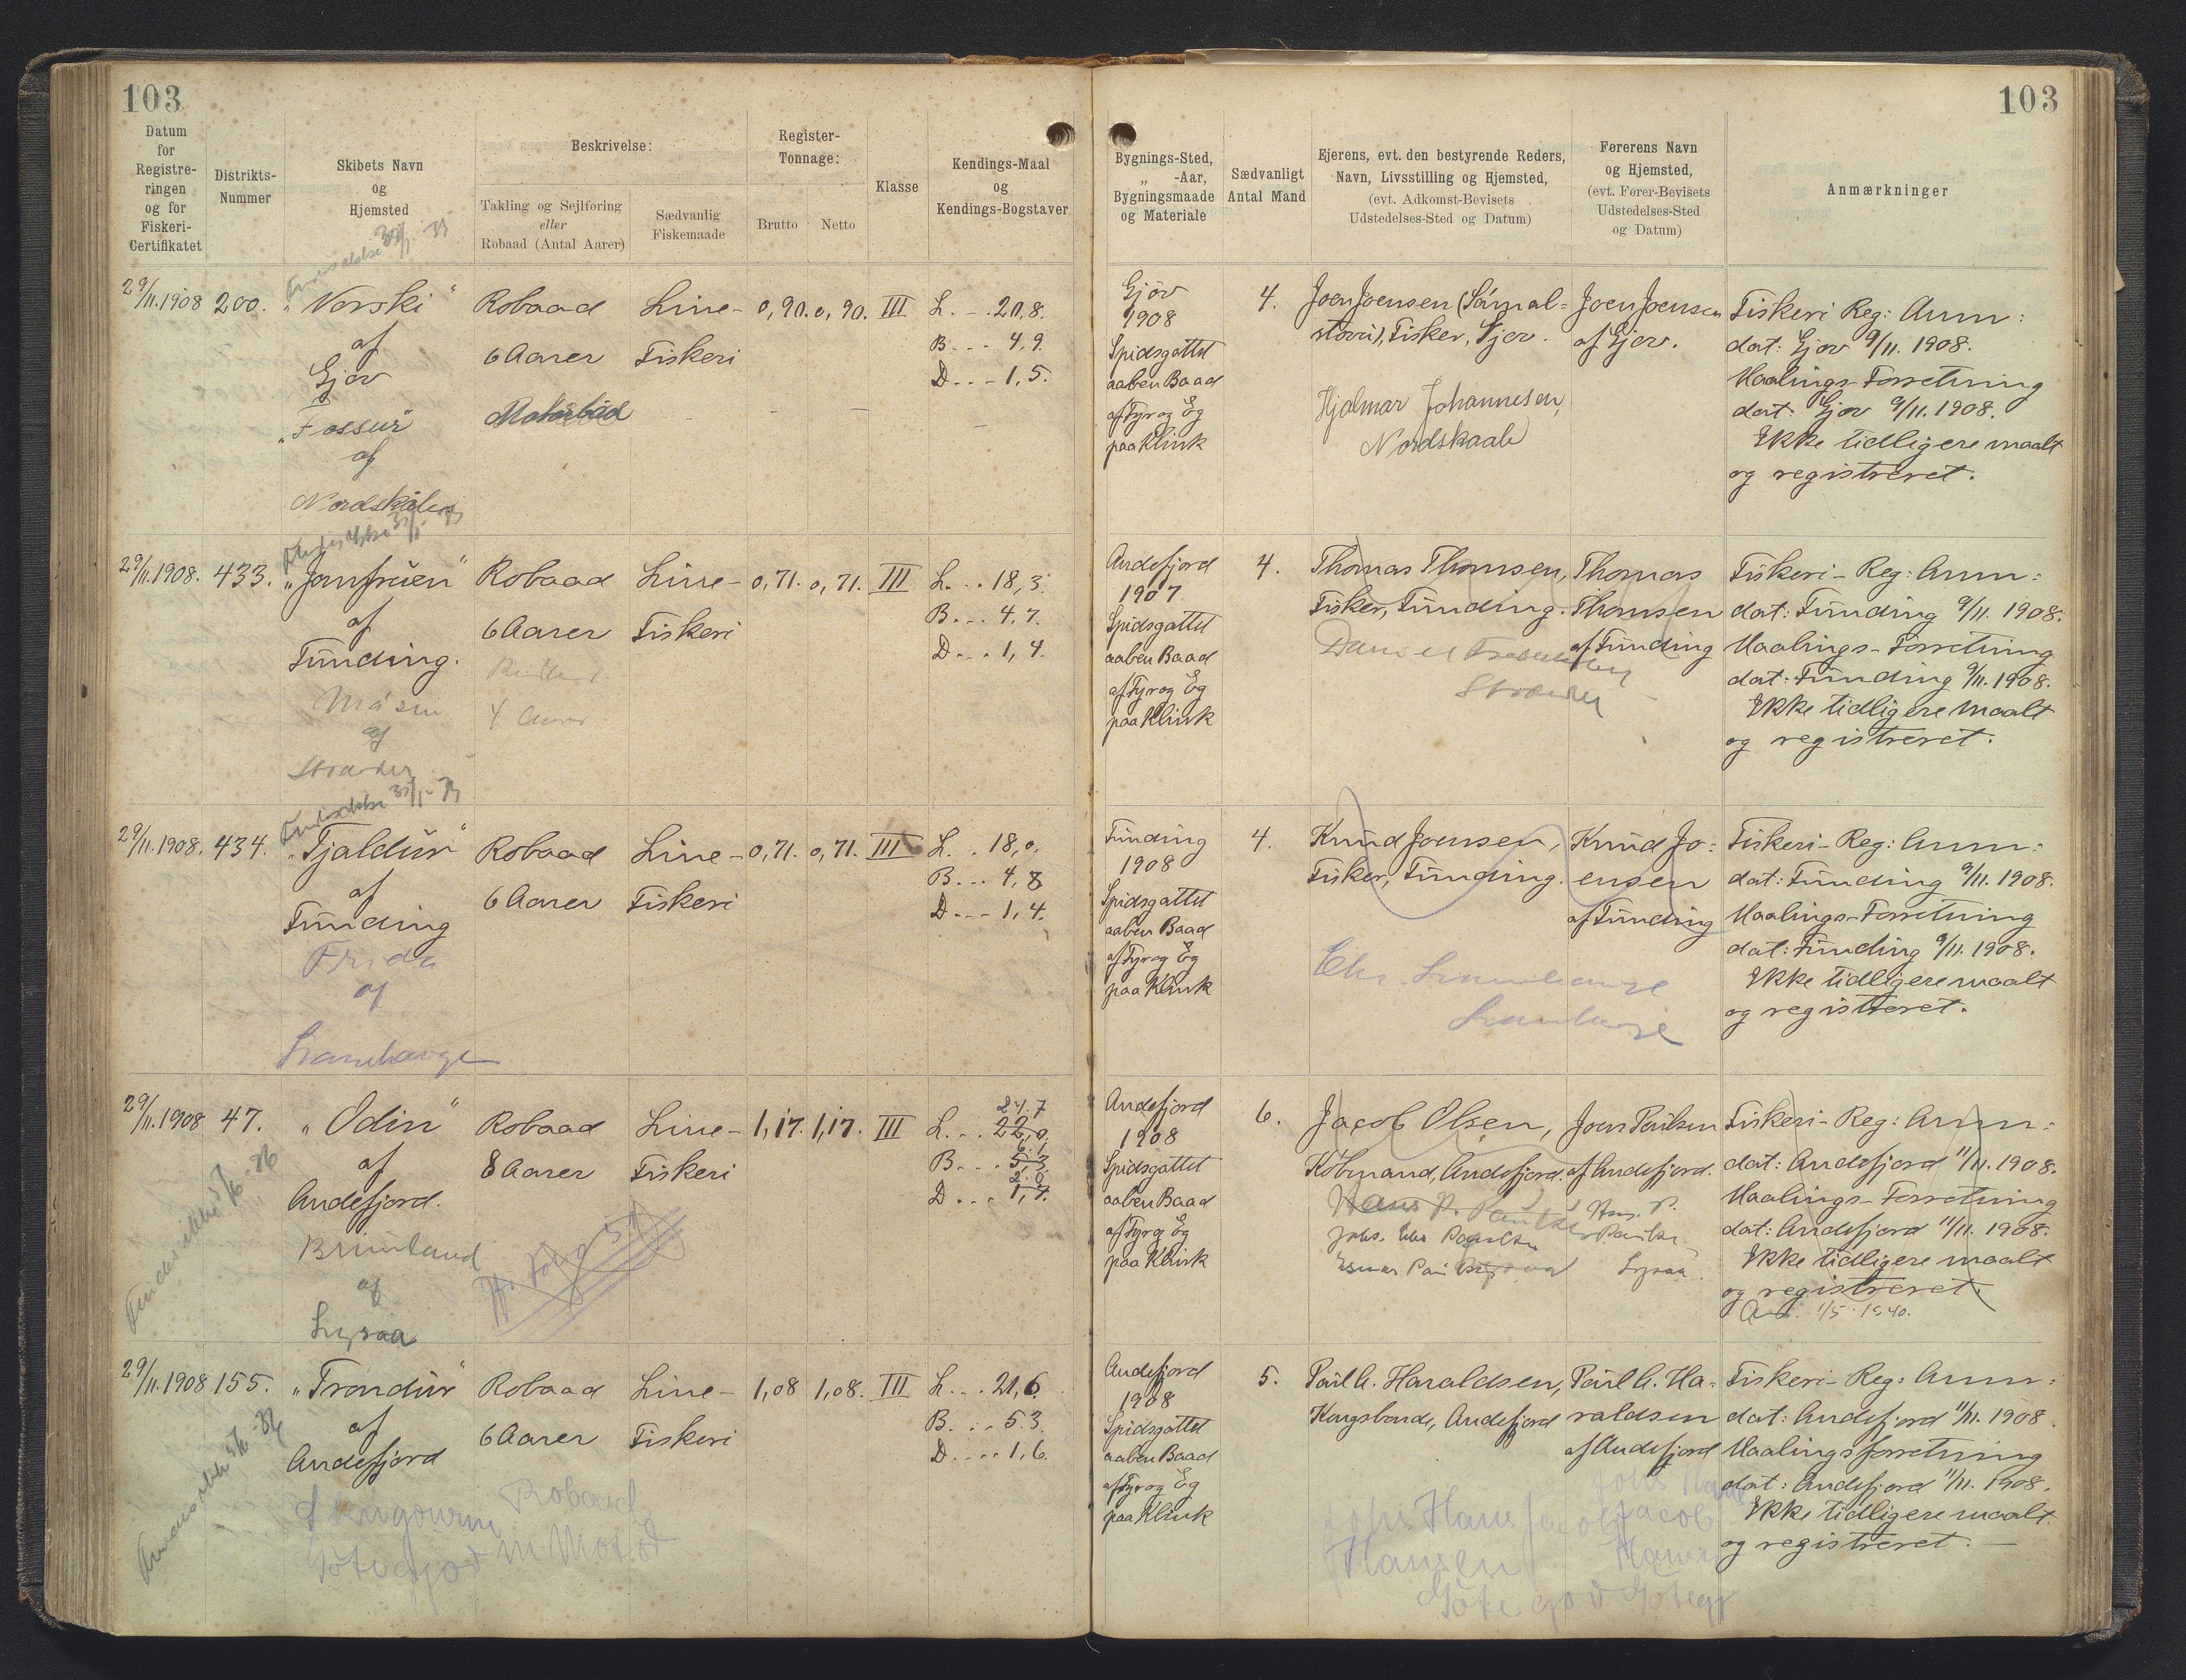 103
103
Datum for Registreringen og for Fiskeri-Certifikatet
Distrikts-Nummer
Skibets Navn og Hjemsted
Beskrivelse:
Takling og Sejlføring eller Robaad (Antal Aarer)
Sædvanlig Fiskemaade
Register-Tonnage:
Brutto
Netto
Klasse
Kendings-Maal og Kendings-Bogstaver
Bygnings-Sted, „ -Aar, Bygningsmaade og Materiale
Sædvanligt Antal Mand
Ejerens, evt. den bestyrende Reders, Navn, Livsstilling og Hjemsted, (evt. Adkomst-Bevisets Udstedelses-Sted og Datum)
Førerens Navn og Hjemsted, (evt. Fører-Bevisets Udstedelses-Sted og Datum)
Anmærkninger
29/11.1908 200. „Norski" Robaad Line- 0,90. 0,90. III L. . . 20,8.
af 6 Aarer Fiskeri B. . . 4,9.
Gjov D. . . 1,5.
„Fossur" Motorbåd
af
Nordskålen
Gjöv
1908
Spidsgattet
aaben Baad
af Fyr og Eg
paa Klink
4.
Joen Joensen (Sámal=
stovu), Fisker, Gjov.
Hjalmar Johannesen,
Nordskaale
Joen Joensen
af Gjov.
Fiskeri Reg: Anm:
dat: Gjov 9/11. 1908.
Maalings-Forretning
dat: Gjov 9/11. 1908.
Ikke tidligere maalt
og registreret.
29/11.1908. 433. „Jomfruen" Robaad Line- 0,71. 0,71. III L. . . 18,3.
af 6 Aarer Fiskeri B. . . 4,7.
Funding. D. . . 1,4.
4 Aarer.
af
Andefjord
1907.
Spidsgattet
aaben Baad
af Fyr og Eg
paa Klink
4.
Thomas Thomsen,
Fisker, Funding.
Thomas
Thomsen
af Funding
Fiskeri-Reg: Anm:
dat: Funding 9/11. 1908.
Maalings-Forretning
dat: Funding 9/11. 1908.
Ikke tidligere maalt
og registreret.
29/11.1908. 434. „Tjaldur" Robaad Line- 0,71. 0,71. III L. . 18,0.
af 6 Aarer Fiskeri B. . . 4,8
Funding D. . . 1,4.
Frida
af
Lambareje
Funding
1908
Spidsgattet
aaben Baad
af Fyr og Eg
paa Klink
4.
Knud Joensen,
Fisker, Funding.
Knud Jo=
ensen
af Funding
Fiskeri-Reg: Anm:
dat: Funding 9/11. 1908.
Maalings-Forretning
dat: Funding 9/11. 1908.
Ikke tidligere maalt
og registreret.
29/11.1908 47. „Odin" Robaad Line- 1,17. 1,17. III L. . . 22,0. 24.7
af 8 Aarer Fiskeri B. . . 5,3. 6.1
Andefjord. D. . . 1,7. 2.0
Brimland
af
Andefjord
1908
Spidsgattet
aaben Baad
af Fyr og Eg
paa Klink
6.
Jacob Olsen,
Købmand, Andefjord.
Joen Poulsen
af Andefjord.
Fiskeri-Reg: Anm:
dat: Andefjord 11/11. 1908.
Maalings-Forretning
dat: Andefjord 11/11. 1908.
Ikke tidligere maalt
og registreret.
1/5 1940.
29/11.1908 155. „Trondur" Robaad Line- 1,08 1,08. III L. . . 21,6.
af 6 Aarer Fiskeri B. . . 5.3.
Andefjord D. . . 1,6.
Robaad
Andefjord
1908
Spidsgattet
aaben Baad
af Fyr og Eg
paa Klink
5.
Poul A. Haraldsen,
Kongsbonde, Andefjord
Poul A. Ha=
raldsen
af Andefjord
Hans Jacob
Hansen
Fiskeri-Reg: Anm:
dat: Andefjord 11/11. 1908.
Maalingsforretning
dat: Andefjord 11/11. 1908.
Ikke tidligere maalt
og registreret.